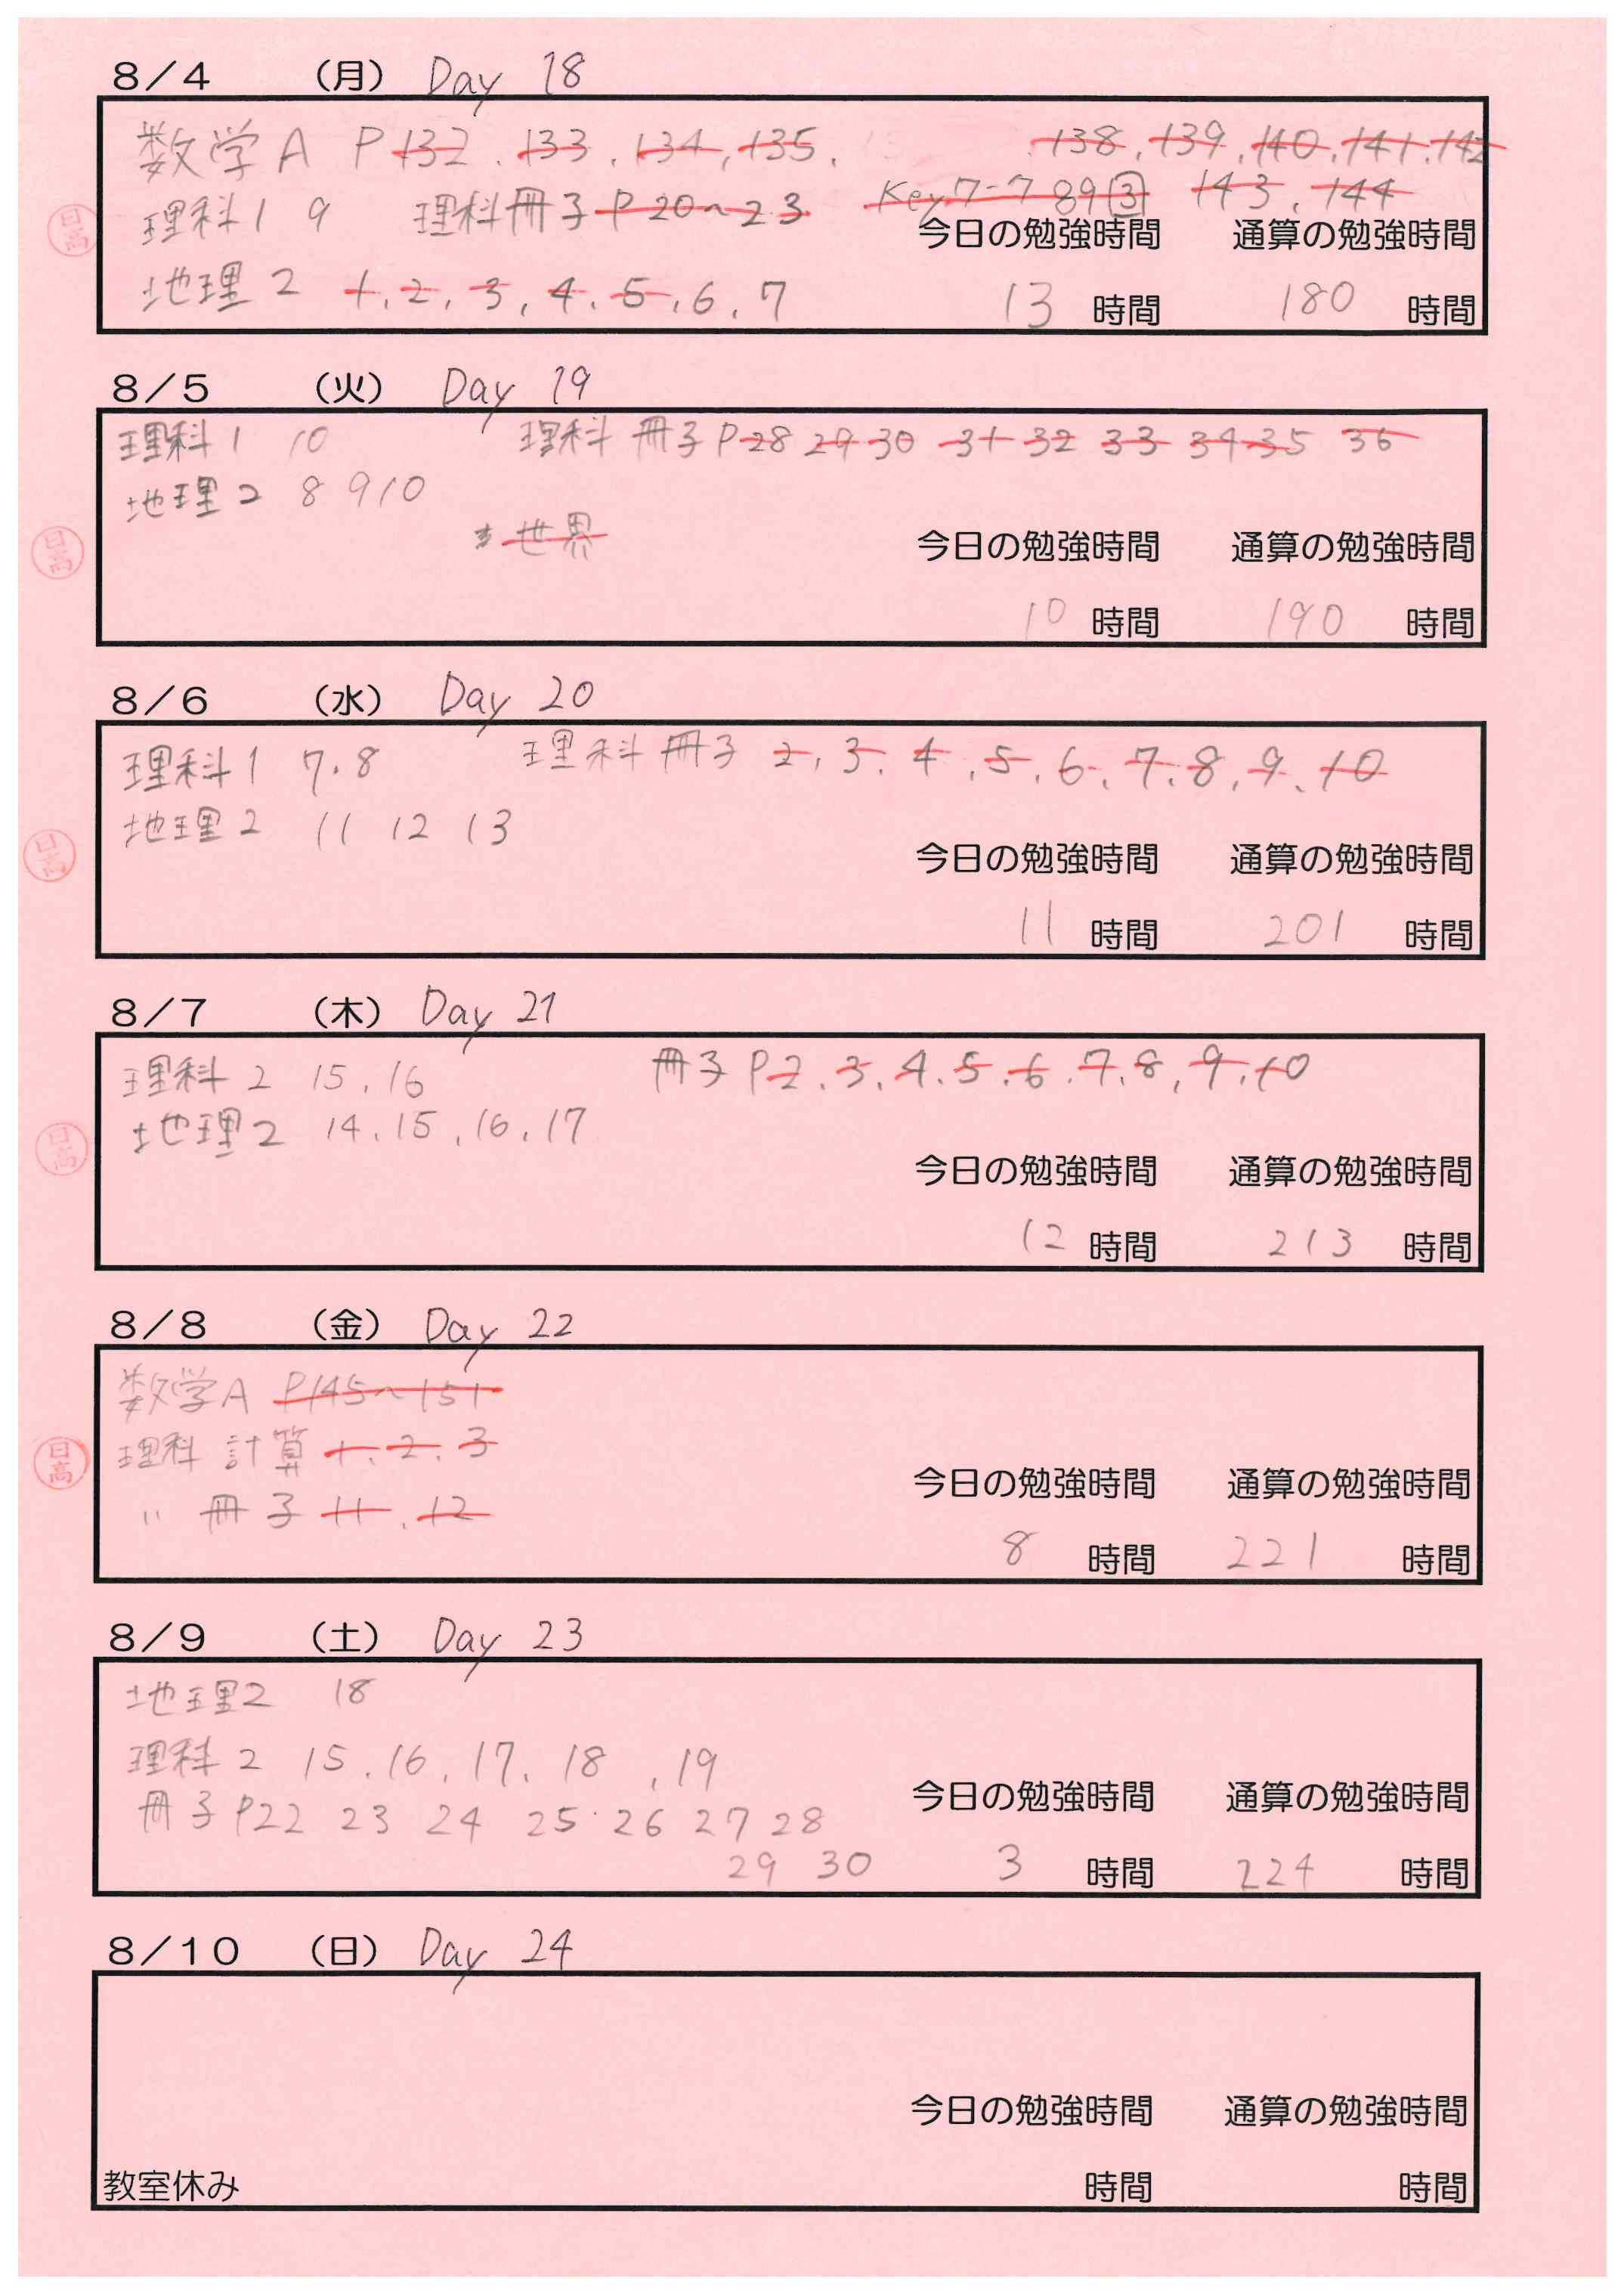 8/4 (月) Day 18
数学A P132、133、134、135、 138、139、140、141、142
Key7-7 89③ 143、144
理科1 9 理科冊子P20~23
地理2 1、2、3、4、5、6、7
今日の勉強時間 通算の勉強時間
13 時間 180 時間
日高
8/5 (火) Day 19
理科1 10 理科冊子P28 29 30 31 32 33 34 35 36
地理2 8 9 10
世界
今日の勉強時間 通算の勉強時間
10 時間 190 時間
日高
8/6 (水) Day 20
理科1 7、8 理科冊子 2、3、4、5、6、7、8、9、10
地理2 11 12 13
今日の勉強時間 通算の勉強時間
11 時間 201 時間
日高
8/7 (木) Day 21
理科2 15、16 冊子P2、3、4、5、6、7、8、9、10
地理2 14、15、16、17
今日の勉強時間 通算の勉強時間
12 時間 213 時間
日高
8/8 (金) Day 22
数学A P145~151
理科 計算 1、2、3
〃 冊子 11、12
今日の勉強時間 通算の勉強時間
8 時間 221 時間
日高
8/9 (土) Day 23
地理2 18
理科2 15、16、17、18、19
冊子P22 23 24 25 26 27 28
29 30
今日の勉強時間 通算の勉強時間
3 時間 224 時間
8/10 (日) Day 24
今日の勉強時間 通算の勉強時間
教室休み 時間 時間